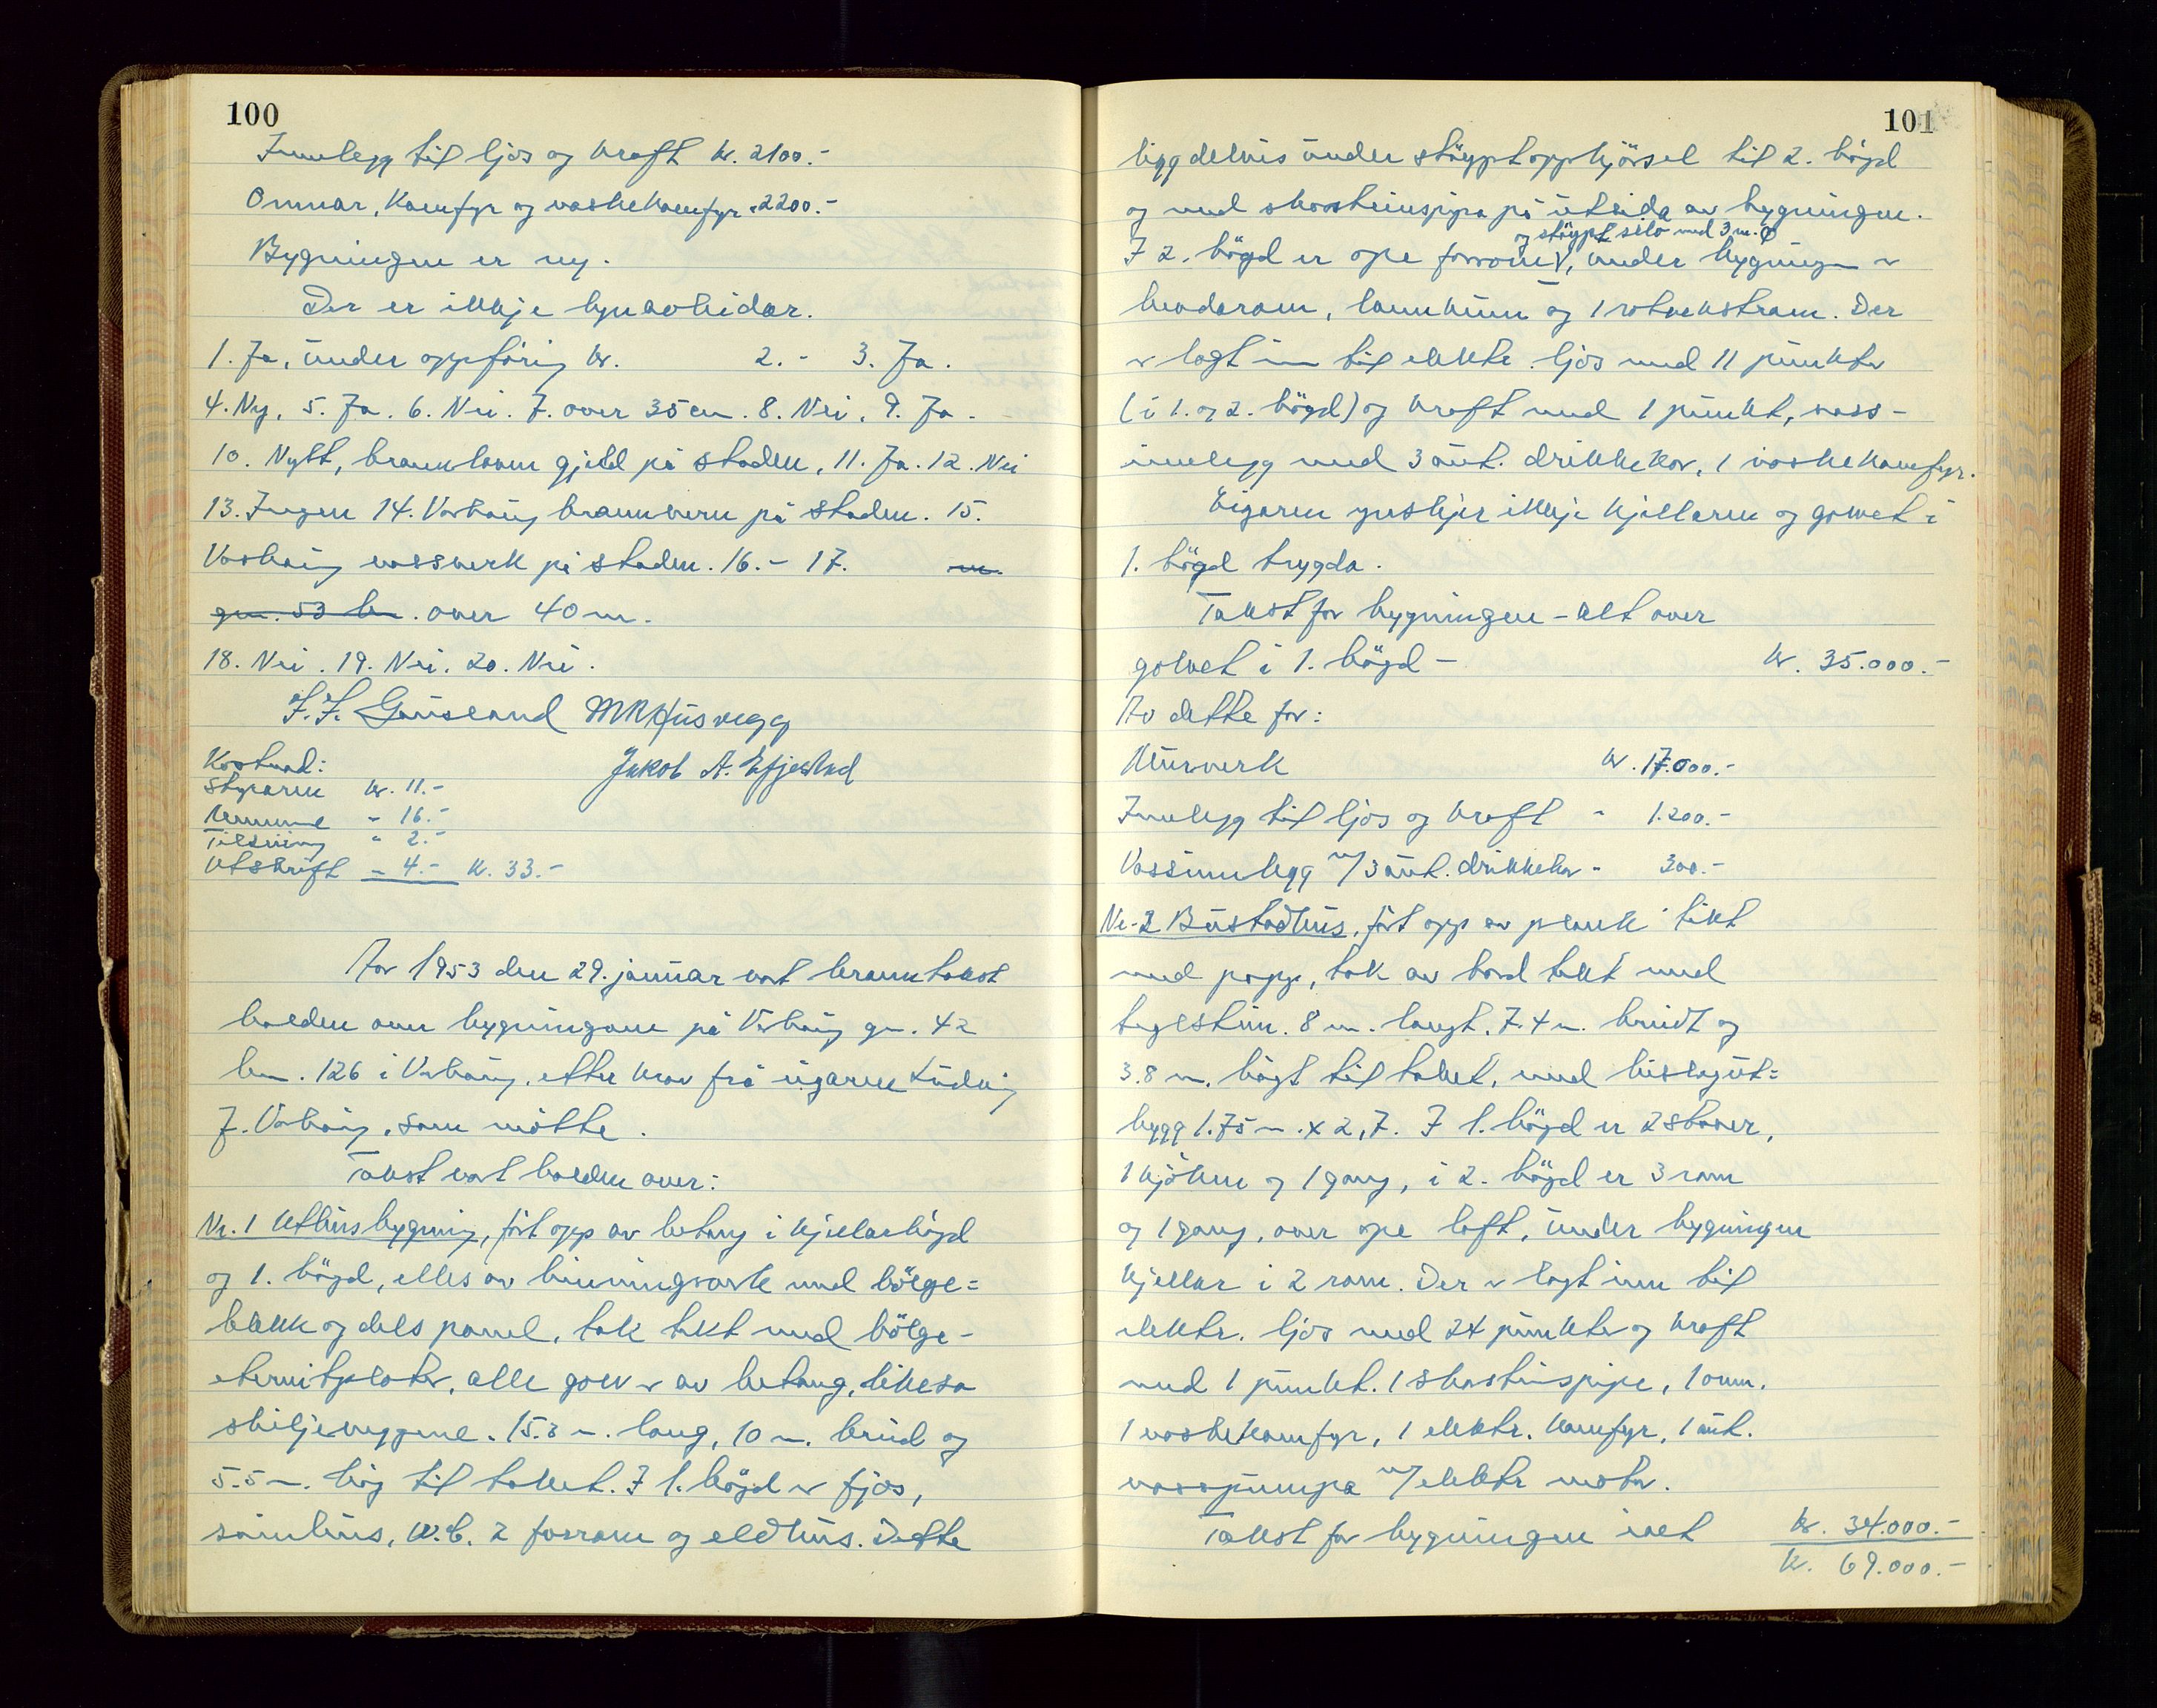 100
Innlegg til ljos og kraft kr. 2100.-
Omnar, Kamfyr og vaskekamfyr " 2200.-
Bygningen er ny.
Der er ikkje lynavleidar.
1. Ja, under oppföring kr. 2. - 3. Ja.
4. Ny, 5. Ja. 6. Nei. 7. over 35 cm. 8. Nei, 9. Ja.
10. Nytt, brannlovm gjeld på staden, 11. Ja. 12. Nei
13. Ingen 14. Varhaug brannvern på staden. 15.
Varhaug vassverk på staden. 16. - 17. m.
gn. 53 bn. over 40 m.
18. Nei. 19. Nei. 20. Nei.
Jakob A. Efjestad
Kostnad:
Styraren kr. 11.-
Nemnd " 16.-
Tilsining " 2.-
Utskrift " 4.- kr. 33.-
Aar 1953 den 29. januar vart branntakst
halden over bygningane på Varhaug gn. 42
bn. 126 i Varhaug, etter krav frå eigaren Ludvig
J. Varhaug, som møtte.
Takst vart halden over:
Nr. 1 Uthusbygning, fört opp av betong i kjellarhögd
og 1. högd, elles av bindingsverk med bölge=
blekk og dels panel, tak tekt med bölge-
eternitplater, alle golv er av betong, likeso
skiljeveggene. 15.3 m. lang, 10 m. breid og
5.5 m. høg til taket. I 1. högd er fjos,
sauhus, W.C. 2 forrom og eldhus. Dette
101
ligg delvis under stöypt oppkjörsel til 2. högd
og med skorsteinspipa på utsida av bygningen.
og stöypt silo med 3 m. φ
I 2. högd er ope forrom, under bygningen er
landkum og 1 rotvekstrom. Der
er lagt inn til elektr. ljos med 11 punkter
(i 1. og 2. högd) og kraft med 1 punkt, vass-
innlegg med 3 aut. drikkekar, 1 vaskekamfyr.
Eigaren ynskjer ikkje kjellaren og golvet i
1. högd trygda.
Takst for bygningen - alt over
golvet i 1. högd - kr. 35.000.-
Av dette for:
Murverk kr. 17.000.-
Innlegg til ljos og kraft " 1.200.-
Vassinnlegg m/3 aut. drikkekar " 300.-
Nr. 2 Bustadhus, fört opp av plank tekt
med papp, tak av bord tekt med
teglstein. 8 m. langt, 7.4 m. breidt og
3.8 m. högt til taket, med bislagut=
bygg 1.75 m. x 2,7. I 1. högd er 2 stover,
1 kjöken og 1 gang, i 2. högd er 3 rom
og 1 gang, over ope loft, under bygningen
kjellar i 2 rom. Der er lagt inn til
elektr. ljos med 24 punkter og kraft
med 1 punkt. 1 skorsteinspipe, 1 omn.
1 vaskekamfyr, 1 elektr. kamfyr, 1 aut.
vasspumpa m/elektr motor.
Takst for bygningen i alt kr. 34.000.-
kr. 69.000.-